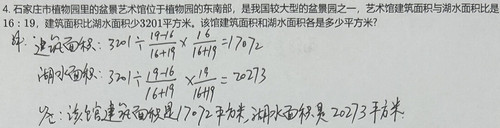 4. 石家庄市植物园里的盆景艺术馆位于植物园的东南部，是我国较大型的盆景园之一，艺术馆建筑面积与湖水面积比是
16：19，建筑面积比湖水面积少3201平方米。该馆建筑面积和湖水面积各是多少平方米？
解：建筑面积：3201÷(19-16)/(16+19)×16/(16+19)=17072
湖水面积：3201÷(19-16)/(16+19)×19/(16+19)=20273
答：该馆建筑面积是17072平方米,湖水面积是20273平方米.